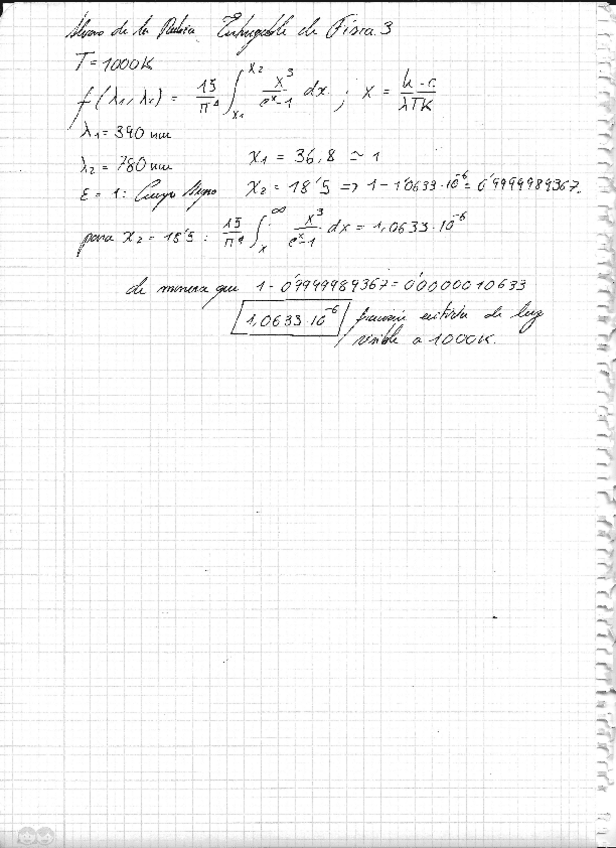 Álvaro de la Rubia Entregable de Física 3
T = 1000K
f(λ1, λ2) = 15/π⁴ ∫_{x1}^{x2} x³/(eˣ-1) dx ; x = h·c/λTK
λ1 = 390 nm
λ2 = 780 nm x1 = 36,8 ≃ 1
ε = 1 : Cuerpo Negro x2 = 18'5 => 1 - 1'0633·10⁻⁶ = 0'9999989367.
para x2 = 18'5 : 15/π⁴ ∫_{x}^{∞} x³/(eˣ-1) dx = 1,0633·10⁻⁶
de manera que 1 - 0'9999989367 = 0'0000010633
1,0633·10⁻⁶ fracción emitida de luz
visible a 1000K.